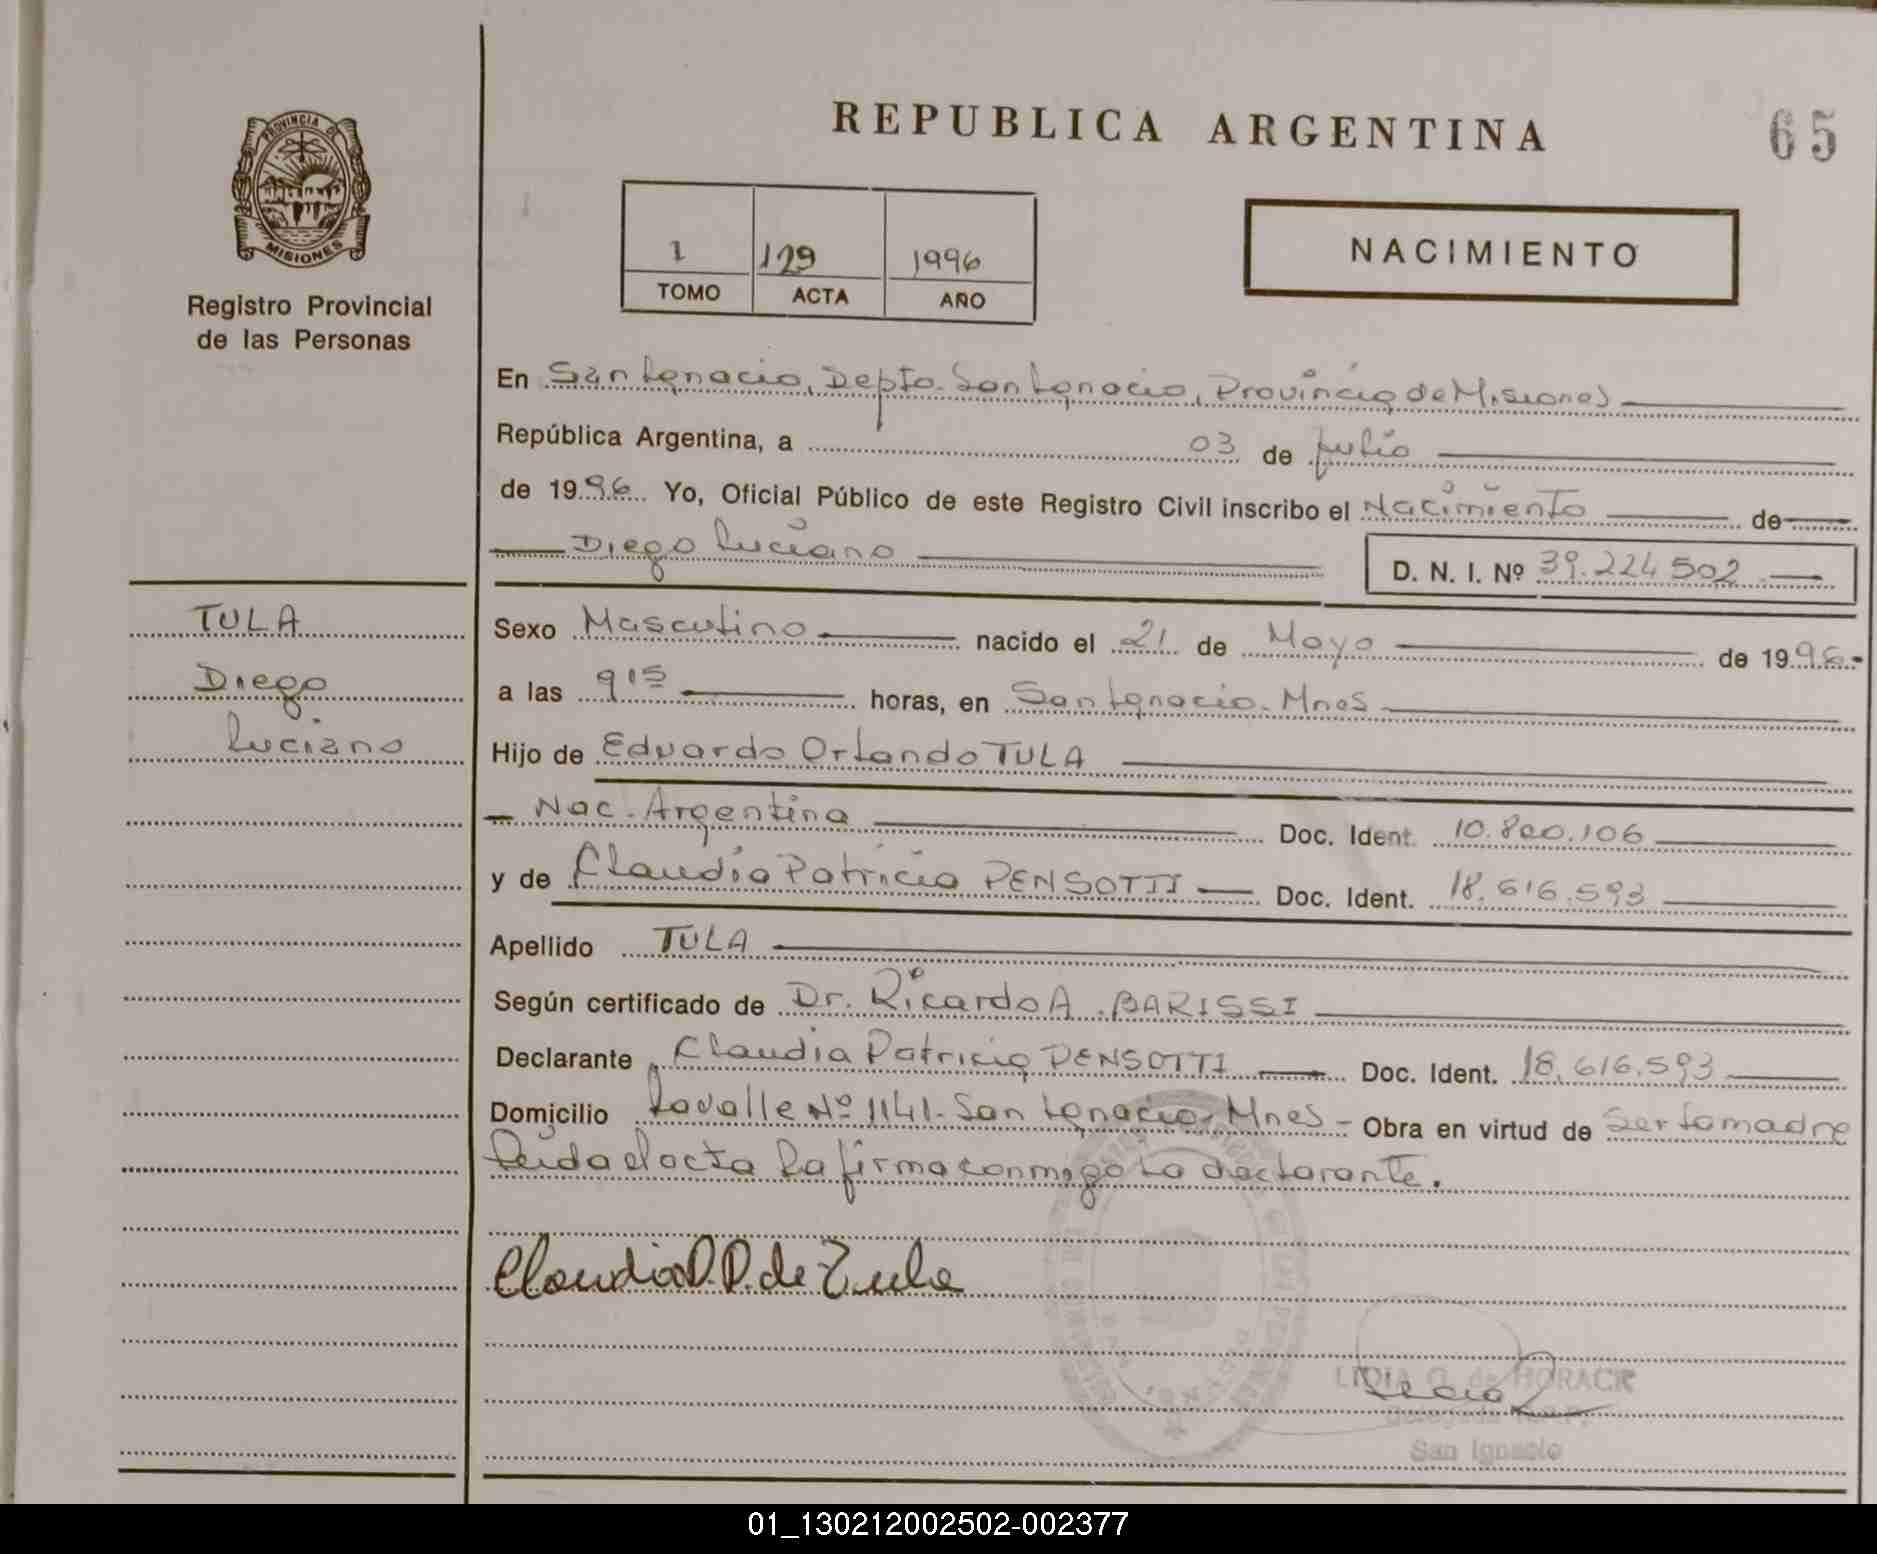 PROVINCIA DE
MISIONES
Registro Provincial
de las Personas
REPUBLICA ARGENTINA
65
1 129 1996
TOMO ACTA AÑO
NACIMIENTO
En San Ignacio, Depto. San Ignacio, Provincia de Misiones
República Argentina, a 03 de Julio
de 1996 Yo, Oficial Público de este Registro Civil inscribo el Nacimiento de
Diego Luciano D. N. I. Nº 39.224.502
TULA
Diego
Luciano
Sexo Masculino nacido el 21 de Mayo de 1996
a las 9 15 horas, en San Ignacio. Mnes
Hijo de Eduardo Orlando TULA
Nac. Argentina Doc. Ident. 10.800.106
y de Claudia Patricia PENSOTTI Doc. Ident. 18.616.593
Apellido TULA
Según certificado de Dr. Ricardo A. BARISSI
Declarante Claudia Patricia PENSOTTI Doc. Ident. 18.616.593
Domicilio Lavalle Nº 1141. San Ignacio, Mnes - Obra en virtud de Ser la madre
Leida el acta la firma conmigo la declarante.
Claudia P. P. de Tula
LIDIA G. de HORACK
San Ignacio
01_130212002502-002377